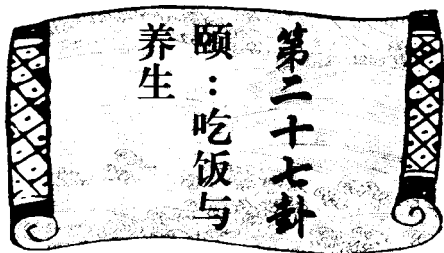 第二十七卦
颐：吃饭与
养生